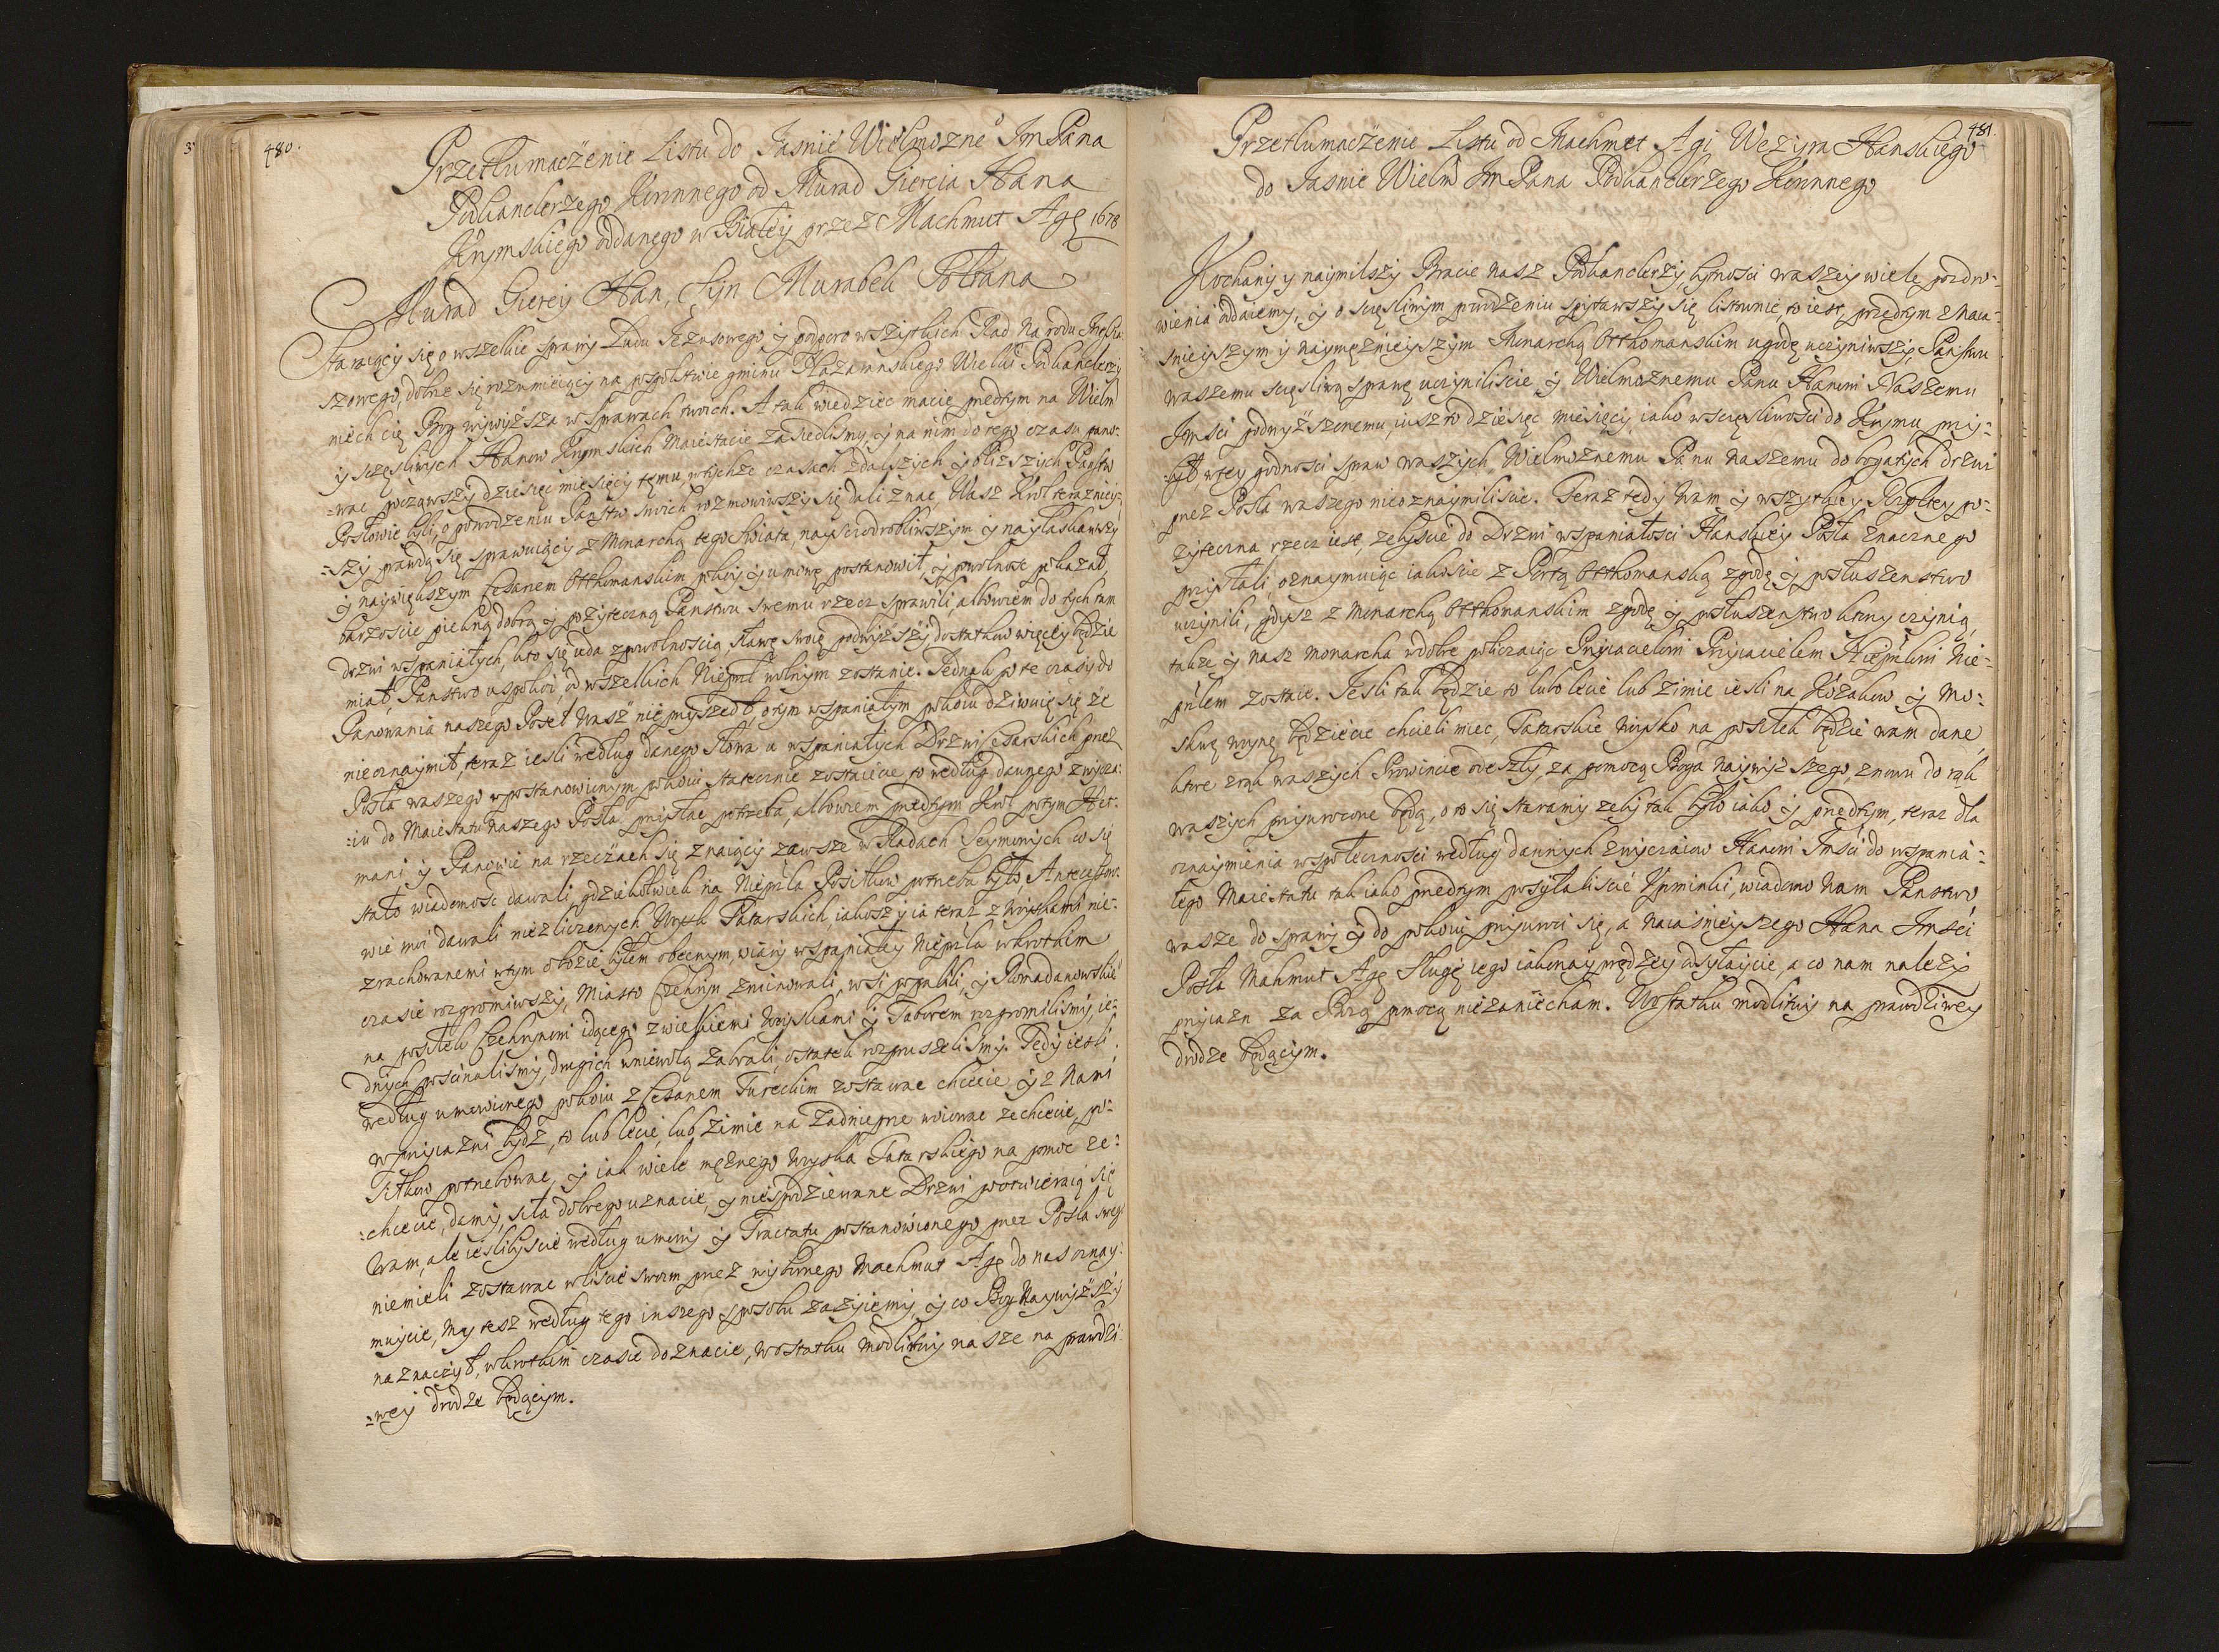 480.
Przetłumaczenie Listu do Jasnie Wielmozne° Jm Pana
Podkanclerzego Koronnego od Murad Giereia Hana
Krymskiego oddanego w Białey przez Machmut Agę 1678
Murad Gierey Han, Syn Murabek Sołtana
Staraiący się o wszelkie sprawy Ludu Jezusowego y podporo wszystkich Rad Narodu
szowego, dobrze się rozumieiący na pospolstwie gminu Nazaranskiego Wielki Podkanclerzy
niech cię Bog wywyższa w sprawach twoich. A tak wiedziec macie predtym na Wielm
y szczęsliwych Hanow Krymskich Maiestacie zasiedlismy, y na nim do tego czasu pano¬
=wac począwszy dziesięc miesięcy temu, w tychze czasach zdalszych y blizszych Państw
Posłowie byli, o powodzeniu Państw swoich rozmowiwszy się dali znac, Wasz Krol terazniey¬
=szy prawdą się sprawuiący z Monarchą tego Swiata, nayszczodrobliwszym y nayłaskawszy
y naywiększym Cesarzem Otthomanskim pokoy y umowę postanowił, y powolnosc pokazał,
barzoscie piekną dobrą y pozyteczną Panstwu swemu rzecz sprawili, albowiem do tych tam
drzwi wspaniałych, kto się uda z powolnoscią, sławę swoię podwyzszy dostatkow więcey będzie
miał, Panstwo uspokoi, od wszelkich Nieprzl wolnym zostanie. Jednak po te czasy do
Panowania naszego Poseł Wasz nie przyszedł, o tym wspaniałym pokoiu dziwuię się że
nie oznaymił, teraz iesli według danego słowa u wspaniałych Drzwi Cesarskich przez
Posła waszego w postanowionym pokoiu statecznie zostaiecie to według dawnego zwycza¬
=iu do Maiestatu naszego Posła przysłac potrzeba, albowiem predtym Krol potym Het¬
mani y Panowie na rzeczach się znaiący zawsze w Radach Seymowych co się
stało wiadomosc dawali, gdziekolwiek na Nieprzla Posiłkow potrzeba było Antecesso¬
wie moi dawali niezliczonych Woysk Tatarskich, iakosz y ia teraz z Woyskami nie¬
zrachowanemi w tym obozie byłem obecnym, wiary wspaniałey Nieprzla w krotkim
czasie rozgromiwszy, Miasto Czehryn zruinowali, wsi popalili, y Romadanowskie°
na posiłek Czehrynowi idącego z wielkiemi Woyskami y Taborem rozgromilismy, ie¬
dnych poscinalismy, drugich w niewolą zabrali, ostatek rozpruszelismy. Tedy iesli
według umowionego pokoiu z Cesarzem Tureckim zostawac chcecie y z Nami
w przyiazni bydz, to lub lecie lub zimie na Zadnieprze woiowac zechcecie, po¬
siłkow potrzebowac, y iak wiele męznego Woyska Tatarskiego na pomoc ze¬
=chcecie, damy, siła dobrego uznacie, y niespodziewane Drzwi pootwieraią się
Wam, ale iesliłyscie według umowy y Tractatu postanowionego przez Posła swego
niemieli zostawac w liscie swoim przez wysłanego Machmut Agę do nas oznay¬
muycie, My tesz według tego inszego sposobu zazyiemy, y co Bog Naywyższy
naznaczył, w krotkim czasie doznacie, w ostatku modlitwy nasze na prawdzi¬
=wey drodze będącym.
481.
Przetłumaczenie Listu od Machmet Agi Wezyra Hanskiego
do Jasnie Wielm Jm Pana Podkanclerzego Koronnego
Kochany y naymilszy Bracie nasz Podkanclerzy, cnosci waszey wiele pozdro¬
wienia oddaiemy, y o szczęsliwym powodzeniu spytawszy się listownie, to iest, przedtym z Naia¬
snieyszym y naymęznieyszym Monarchą Otthomanskim ugodę uczyniwszy, Panstwu
waszemu szczęsliwą sprawę uczyniliscie y Wielmoznemu Panu Hanowi Naszemu
Jmsci podwyższonemu, iusz to dziesięc miesięcy, iako w szczęsliwosci do Krymu przy¬
=był w tey godnosci spraw waszych Wielmoznemu Panu naszemu do bogatych drzwi
przez Posła waszego nieoznaymiliscie. Teraz tedy Wam y wszytkiey Rzpltey po¬
zyteczna rzecz iest, zebyscie do Drzwi wspaniałosci Hanskiey Posła znacznego
przysłali, oznaymuiąc iakoscie z Portą Otthomanską zgodę y posłuszenstwo
uczynili, gdysz z Monarchą Otthomanskim zgodę y posłuszenstwo ktorzy czynią,
takze y nasz Monarcha w dobre policzaiąc Przyiacielowi Przyiacielem Nieprzlowi Nie¬
przlem zostaie. Jesli tak będzie to lubo lecie lub zimie iesli na Kozakow y Mo¬
skwę woynę będziecie chcieli miec, Tatarskie Woysko na posiłek będzie wam dane,
ktore z rąk waszych Prowincie odeszły, za pomocą Boga Naywyzszego, znowu do rąk
waszych przywrocone będą, o to się staramy zeby tak było iako y przedtym, teraz dla
oznaymienia wspołecznosci według dawnych zwyczaiow Hanowi Jmsci do wspania¬
łego Maiestatu tak iako predtym posyłaliscie Upominki, wiadomo Nam Panstwo
wasze do sprawy y do pokoiu przywroci się, a Naiasnieyszego Hana Jmsci
Posła Mahmut Agę Sługę iego iakonayprędzey odsyłaycie, a co nam nalezy
przyiazn za Bozą pomocą niezaniecham. W ostatku modlitwy na prawdziwey
drodze będącym.